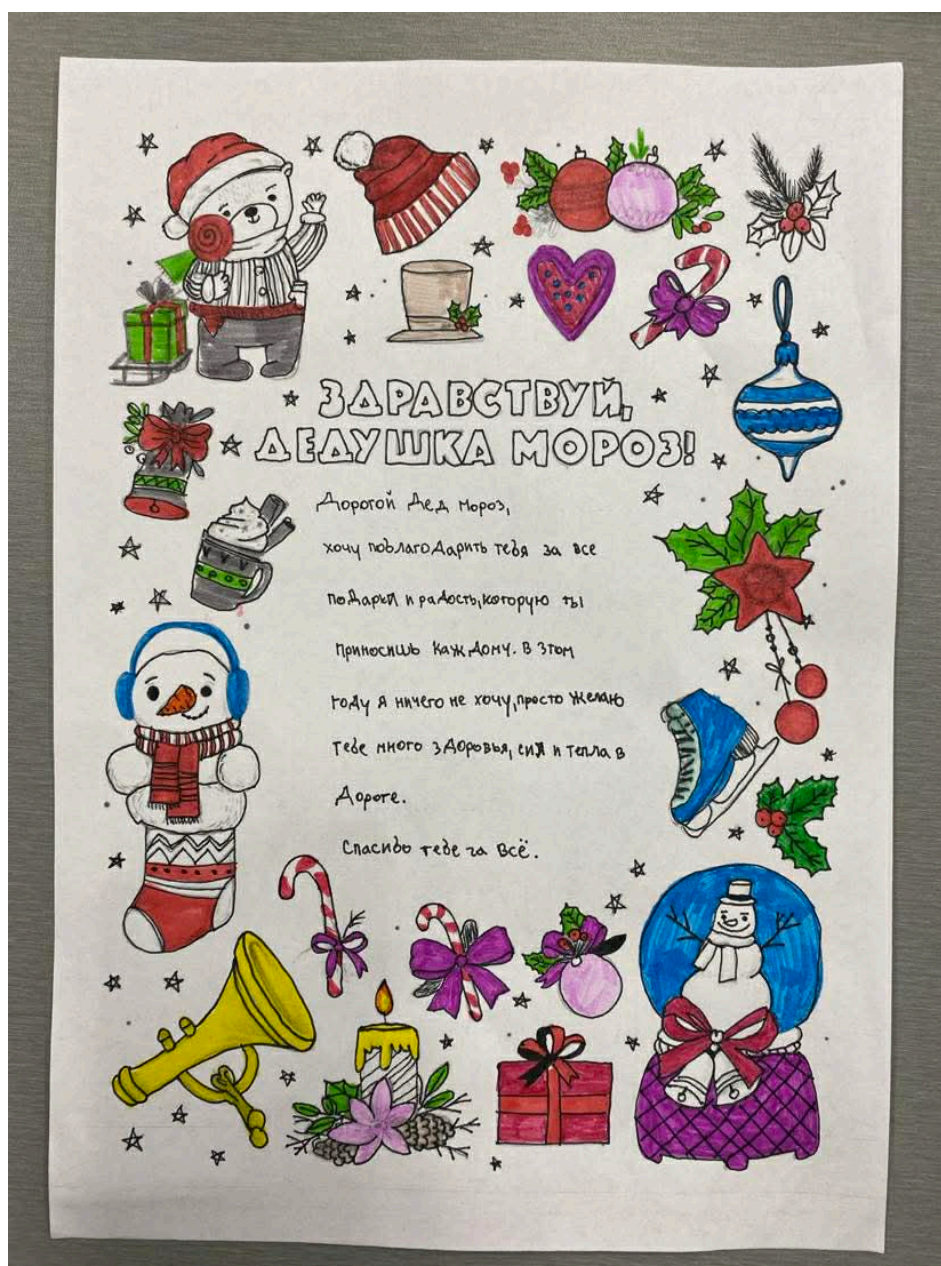 ЗДРАВСТВУЙ,
ДЕДУШКА МОРОЗ!
Дорогой Дед Мороз,
хочу поблагодарить тебя за все
подарки и радость, которую ты
приносишь каждому. В этом
году я ничего не хочу, просто желаю
тебе много здоровья, сил и тепла в
дороге.
Спасибо тебе за всё.